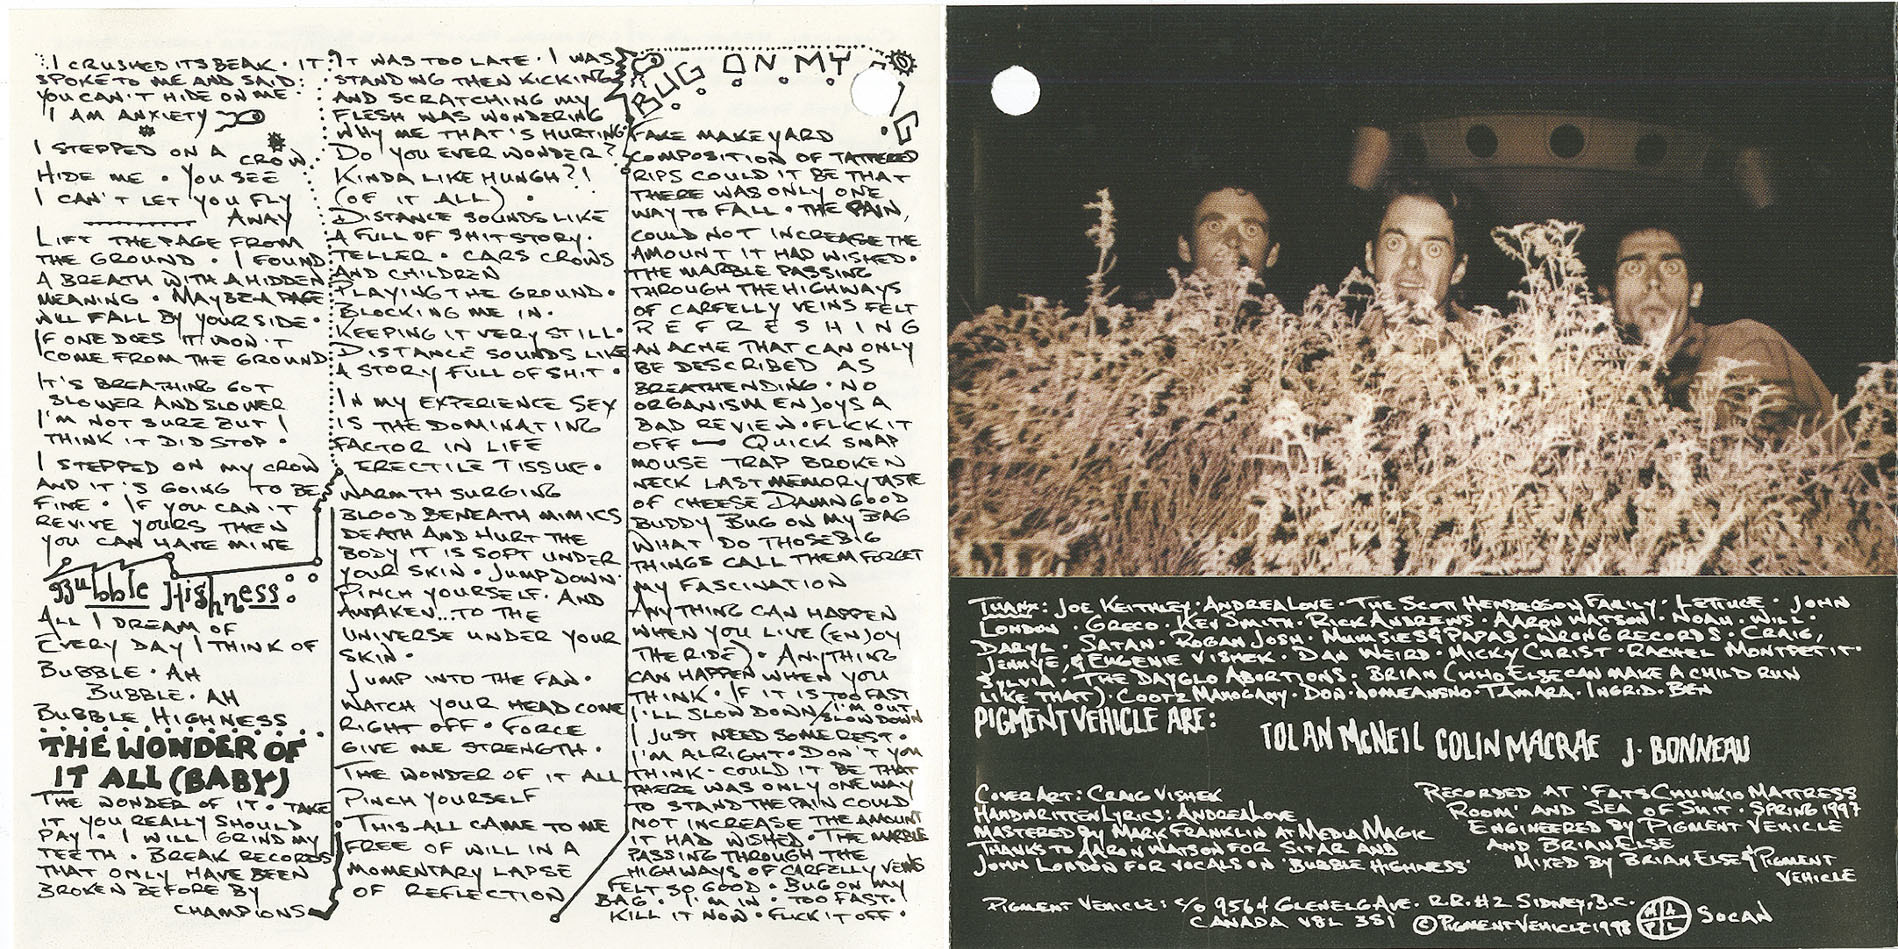 I CRUSHED ITS BEAK · IT
SPOKE TO ME AND SAID:
YOU CAN'T HIDE ON ME
I AM ANXIETY
I STEPPED ON A CROW
HIDE ME · YOU SEE
I CAN'T LET YOU FLY
AWAY
LIFT THE PAGE FROM
THE GROUND · I FOUND
A BREATH WITH A HIDDEN
MEANING · MAYBE A PAGE
WILL FALL BY YOUR SIDE ·
IF ONE DOES IT WON'T
COME FROM THE GROUND
IT'S BREATHING GOT
SLOWER AND SLOWER
I'M NOT SURE BUT I
THINK IT DID STOP ·
I STEPPED ON MY CROW
AND IT'S GOING TO BE
FINE · IF YOU CAN'T
REVIVE YOURS THEN
YOU CAN HAVE MINE
Bubble Highness:
ALL I DREAM OF
EVERY DAY I THINK OF
BUBBLE · AH
BUBBLE · AH
BUBBLE HIGHNESS
THE WONDER OF
IT ALL (BABY)
THE WONDER OF IT · TAKE
IT YOU REALLY SHOULD
PAY · I WILL GRIND MY
TEETH · BREAK RECORDS
THAT ONLY HAVE BEEN
BROKEN BEFORE BY
CHAMPIONS
IT WAS TOO LATE · I WAS
STANDING THEN KICKING
AND SCRATCHING MY
FLESH WAS WONDERING
WHY ME THAT'S HURTING
DO YOU EVER WONDER?
KINDA LIKE HUNGH?!
(OF IT ALL) ·
DISTANCE SOUNDS LIKE
A FULL OF SHIT STORY·
TELLER · CARS CROWS
AND CHILDREN
PLAYING THE GROUND ·
BLOCKING ME IN ·
KEEPING IT VERY STILL ·
DISTANCE SOUNDS LIKE
A STORY FULL OF SHIT ·
IN MY EXPERIENCE SEX
IS THE DOMINATING
FACTOR IN LIFE
ERECTILE TISSUE ·
WARMTH SURGING
BLOOD BENEATH MIMICS
DEATH AND HURT THE
BODY IT IS SOFT UNDER
YOUR SKIN · JUMP DOWN ·
PINCH YOURSELF · AND
AWAKEN...TO THE
UNIVERSE UNDER YOUR
SKIN ·
JUMP INTO THE FAN ·
WATCH YOUR HEAD COME
RIGHT OFF · FORCE
GIVE ME STRENGTH ·
THE WONDER OF IT ALL
PINCH YOURSELF
THIS ALL CAME TO ME
FREE OF WILL IN A
MOMENTARY LAPSE
OF REFLECTION
BUG ON MY
FAKE MAKE YARD
COMPOSITION OF TATTERED
RIPS COULD IT BE THAT
THERE WAS ONLY ONE
WAY TO FALL · THE PAIN,
COULD NOT INCREASE THE
AMOUNT IT HAD WISHED ·
THE MARBLE PASSING
THROUGH THE HIGHWAYS
OF CARFELLY VEINS FELT
REFRESHING
AN ACHE THAT CAN ONLY
BE DESCRIBED AS
BREATHENDING · NO
ORGANISM ENJOYS A
BAD REVIEW · FLICK IT
OFF — QUICK SNAP
MOUSE TRAP BROKEN
NECK LAST MEMORY TASTE
OF CHEESE DAMN GOOD
BUDDY BUG ON MY BAG
WHAT DO THOSE BIG
THINGS CALL THEM FORGET
MY FASCINATION
ANYTHING CAN HAPPEN
WHEN YOU LIVE (ENJOY
THE RIDE) · ANYTHING
CAN HAPPEN WHEN YOU
THINK · IF IT IS TOO FAST
I'LL SLOW DOWN / I'M OUT
SLOW DOWN
I JUST NEED SOME REST ·
I'M ALRIGHT · DON'T YOU
THINK - COULD IT BE THAT
THERE WAS ONLY ONE WAY
TO STAND THE PAIN COULD
NOT INCREASE THE AMOUNT
IT HAD WISHED · THE MARBLE
PASSING THROUGH THE
HIGHWAYS OF CARFELLY VEINS
FELT SO GOOD · BUG ON MY
BAG · I'M IN · TOO FAST ·
KILL IT NOW · FLICK IT OFF ·
THANX: JOE KEITHLEY · ANDREA LOVE · THE SCOTT HENDERSON FAMILY · LETTUCE · JOHN
LONDON · GRECO · KEV SMITH · RICK ANDREWS · AARON WATSON · NOAH · WILL ·
DARYL · SATAN · ROGAN JOSH · MUMSIES & PAPAS · WRONG RECORDS · CRAIG,
JENNYE, & EUGENIE VISHEK · DAN WEIRD · MICKY CHRIST · RACHEL MONTPETIT ·
SYLVIA · THE DAYGLO ABORTIONS · BRIAN (WHO ELSE CAN MAKE A CHILD RUN
LIKE THAT) · COOTZ MAHOGANY · DON · NOMEANSNO · TAMARA · INGRID · BEN
PIGMENT VEHICLE ARE:
TOLAN McNEIL COLIN MACRAE J. BONNEAU
COVER ART: CRAIG VISHEK
HANDWRITTEN LYRICS: ANDREA LOVE
MASTERED BY MARK FRANKLIN AT MEDIA MAGIC
THANKS TO AARON WATSON FOR SITAR AND
JOHN LONDON FOR VOCALS ON 'BUBBLE HIGHNESS'
RECORDED AT 'FATS CHUNKIO MATTRESS
ROOM' AND SEA OF SHIT · SPRING 1997
ENGINEERED BY PIGMENT VEHICLE
AND BRIAN ELSE
MIXED BY BRIAN ELSE & PIGMENT
VEHICLE
PIGMENT VEHICLE: C/O 9564 GLENELG AVE. R.R.#2 SIDNEY, B.C.
CANADA V8L 3S1 © PIGMENT VEHICLE 1998 MAPL SOCAN